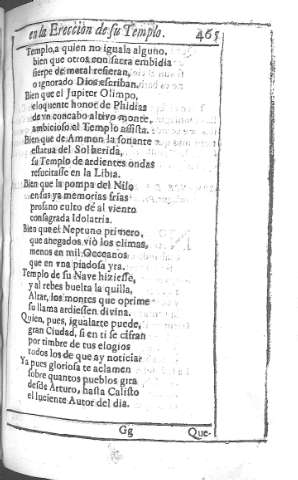 en la Ereccion de su Templo. 465
Templo, a quien no iguala alguno,
bien que otros con sacra embidia
sierpe de metal refieran,
o ignorado Dios escriban.
Bien que el Jupiter Olimpo,
eloquente honor de Phidias
de vn concabo altivo monte,
ambicioso el Templo assista.
Bien que de Ammon la sonante
estatua del Sol herida,
su Templo de ardientes ondas
resucitasse en la Libia.
Bien que la pompa del Nilo
en sus ya memorias frias
profano culto dé al viento
consagrada Idolatria.
Bien que el Neptuno primero,
que anegados viò los climas,
menos en mil Occeanos
que en vna piadosa yra.
Templo de su Nave hiziesse,
y al rebes buelta la quilla,
Altar, los montes que oprime
su llama ardiessen divina.
Quien, pues, igualarte puede,
gran Ciudad, si en ti se cifran
por timbre de tus elogios
todos los de que ay noticia?
Ya pues gloriosa te aclamen
sobre quantos pueblos gira
desde Arturo, hasta Calisto
el luciente Autor del dia.
Gg Que-